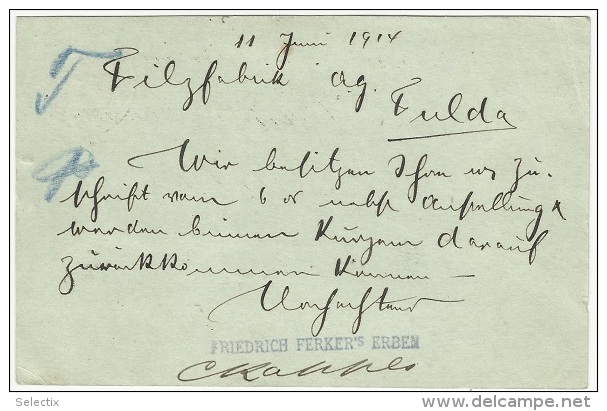 11 Juni 1914
Filzfabrik AG.
Fulda
Wir besitzen Ihre w Zu-
schrift vom 6 cr nebst Aufstellung &
werden binnen Kurzem darauf
zurückkommen können —
Hochachtend
FRIEDRICH FERKER'S ERBEN
Selectix
delcampe.net